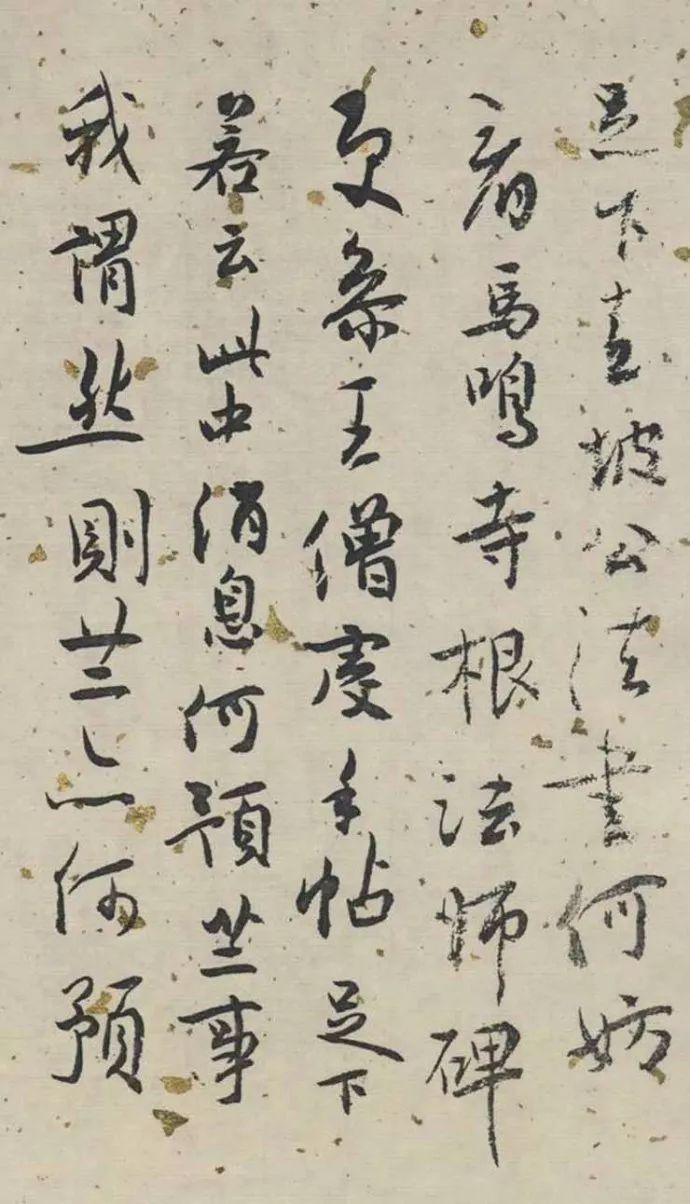 足下喜坡公法書何妨
看馬鳴寺根法師碑
更參王僧虔手帖足下
若云此中消息何預事
我謂然則亦何預